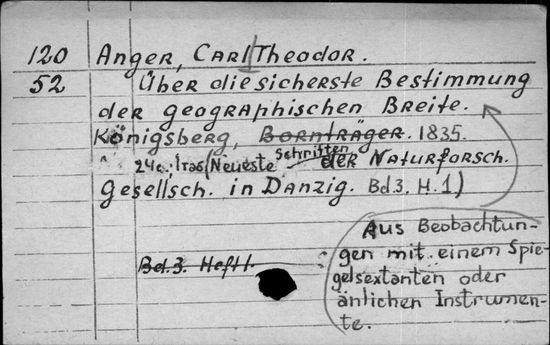 120 Anger, Carl Theodor.
52 Über die sicherste Bestimmung
der geographischen Breite.
Königsberg, Bornträger. 1835.
Schriften
24c., (Neueste der Naturforsch.
Gesellsch. in Danzig. Bd 3. H. 1)
Aus Beobachtun-
gen mit einem Spie-
Bd. 3. Heft 1.
gelsextanten oder
änlichen Instrumen-
te.